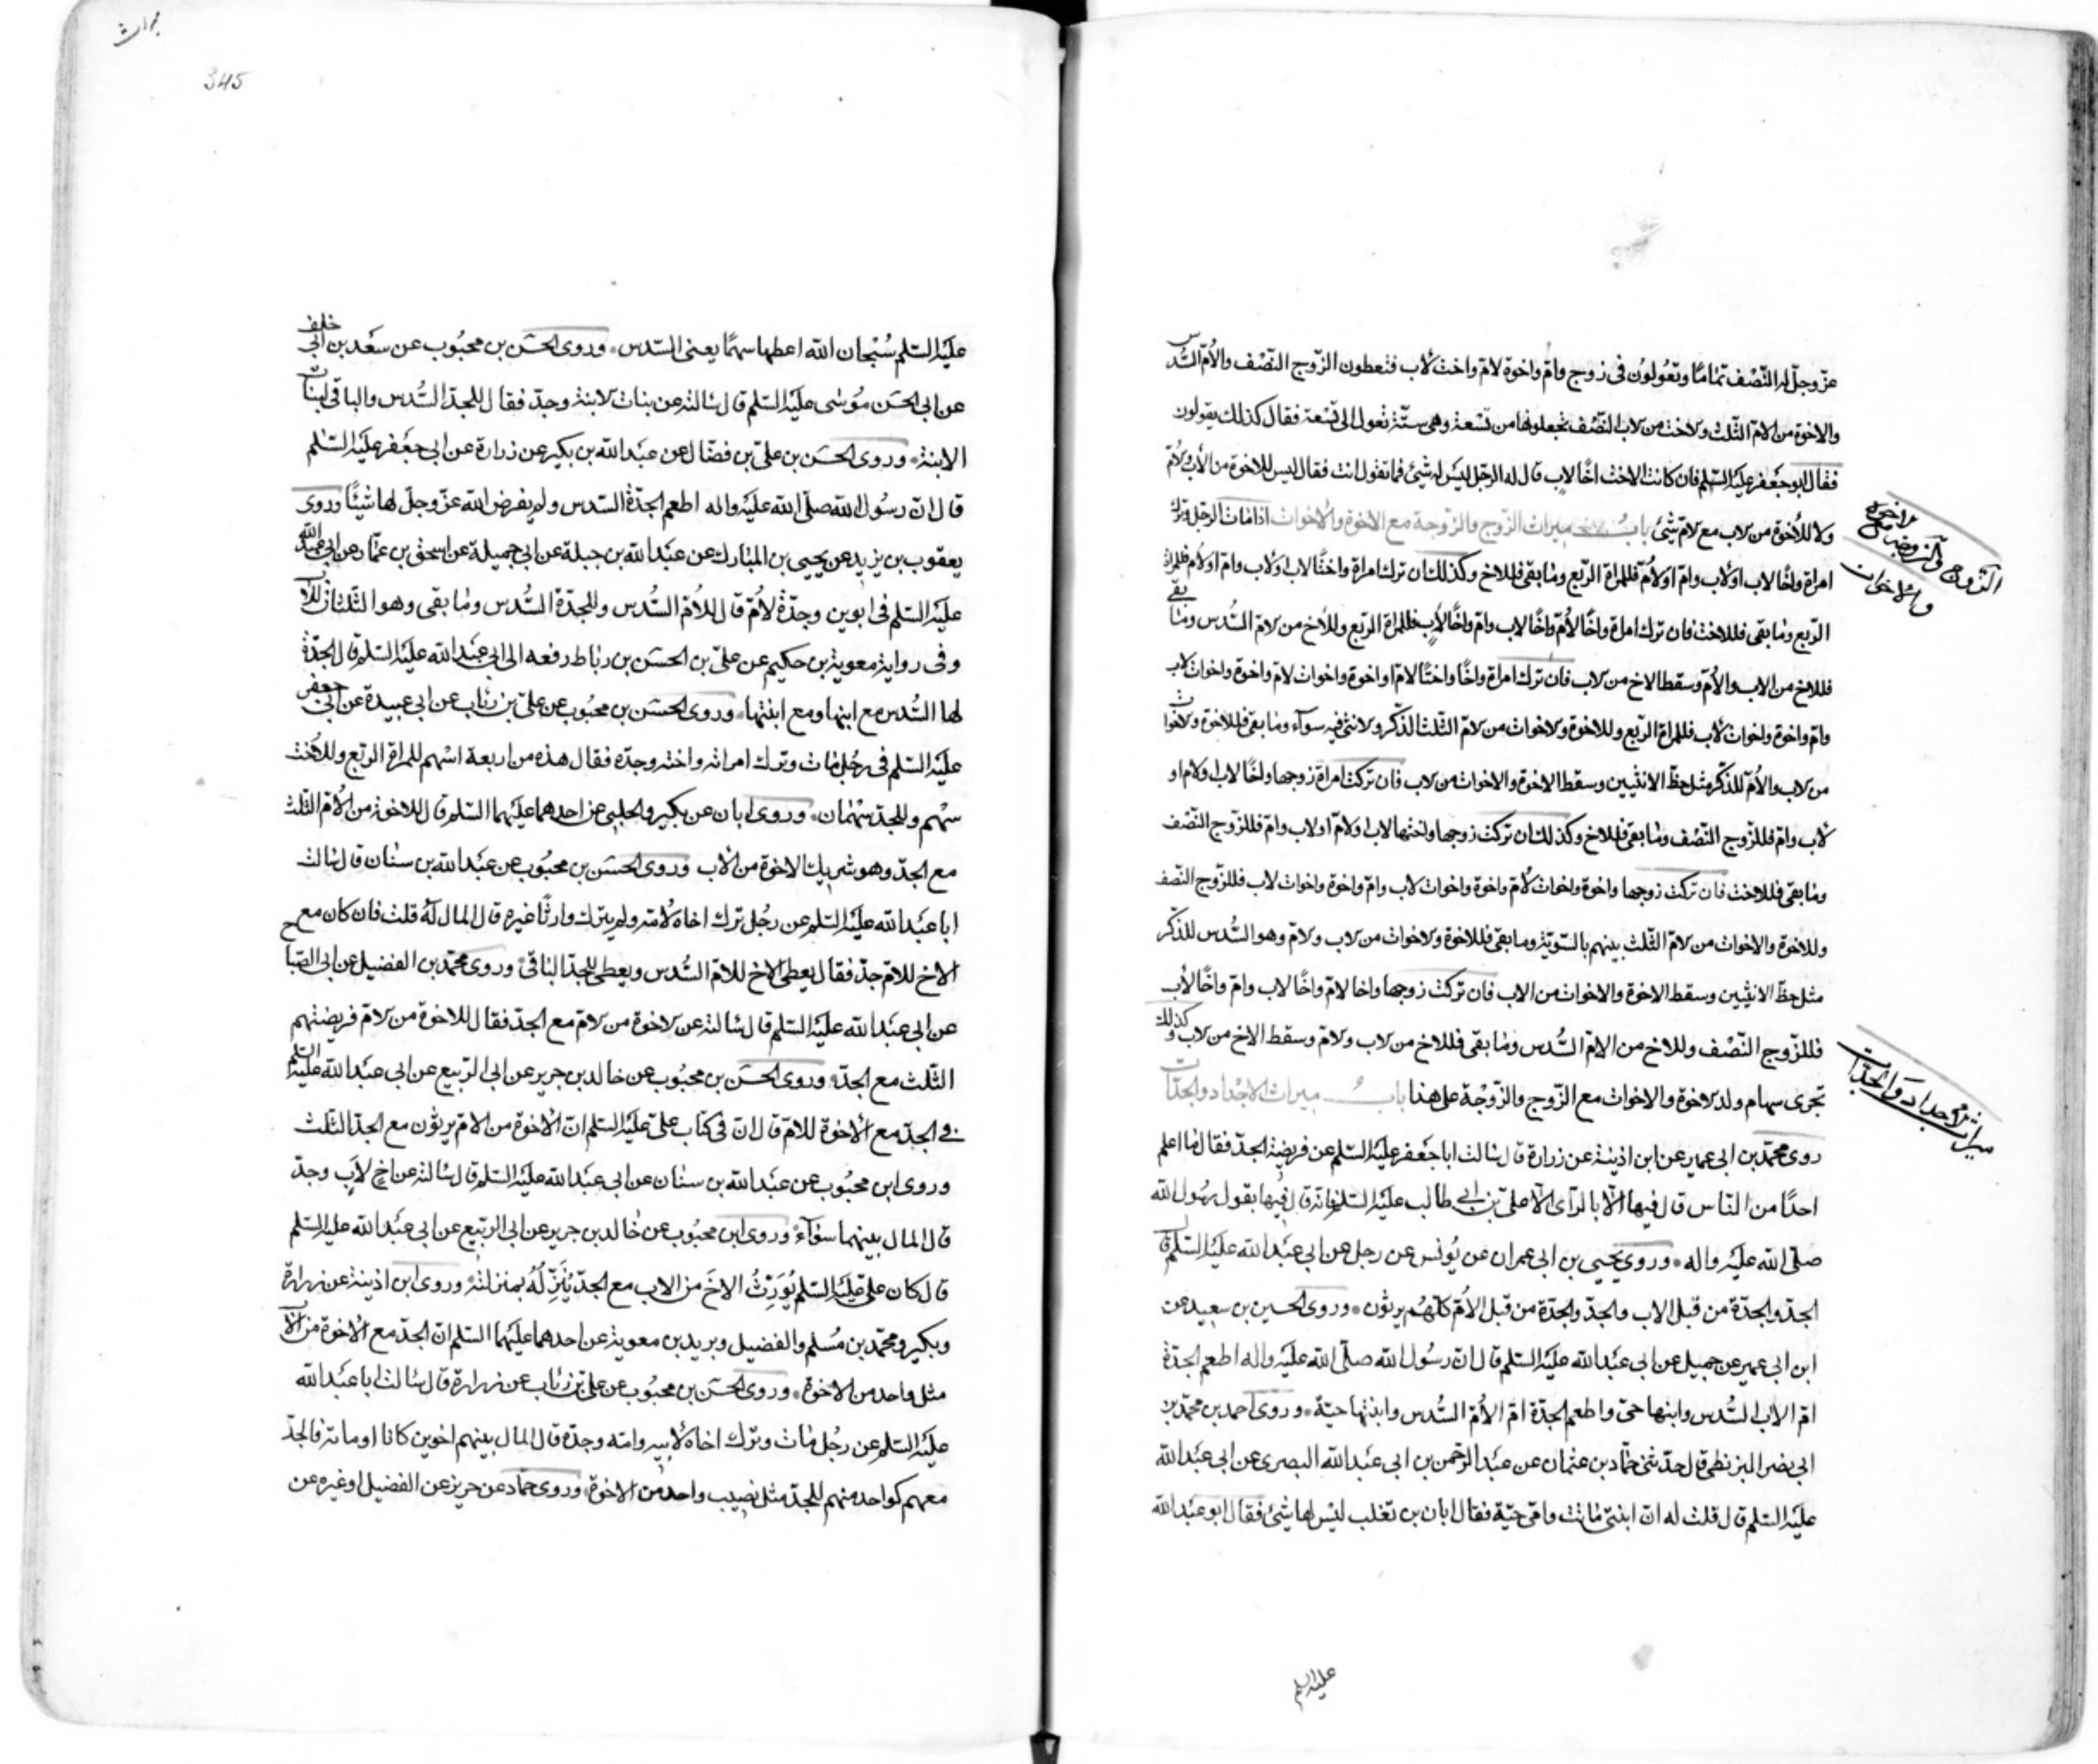 عزّ وجلّ له النّصف تماما وتعولون فى زوج وامّ واخوة لامّ واخت لاب فتعطون الزّوج النّصف والامّ السّدس
والاخوة من الامّ الثّلث والاخت من الاب النّصف تجعلونها من تسعة وهى ستّة تعول الى تسعة فقال كذلك يقولون
فقال ابو جعفر عليه السّلم فان كانت الاخت اخا لاب قال له الرّجل ليس له شىء فما تقول انت فقال ليس للاخوة من الاب والامّ
ولا للاخوة من الاب مع الامّ شىء باب ميراث الزّوج والزّوجة مع الاخوة والاخوات اذا مات الرّجل وترك
امراة واخا لاب او لاب وامّ او لامّ فللمراة الرّبع وما بقى فللاخ وكذلك ان ترك امراة واختا لاب او لاب وامّ او لامّ فللمراة
الرّبع وما بقى فللاخت فان ترك امراة واخا لامّ واخا لاب وامّ واخا لاب فللمراة الرّبع وللاخ من الامّ السّدس وما بقى
فللاخ من الاب والامّ وسقط الاخ من الاب فان ترك امراة واخا واختا لامّ او اخوة واخوات لامّ واخوة واخوات لاب
وامّ واخوة واخوات لاب فللمراة الرّبع وللاخوة والاخوات من الامّ الثّلث الذّكر والانثى فيه سواء وما بقى فللاخوة والاخوات
من الاب والامّ للذّكر مثل حظّ الانثيين وسقط الاخوة والاخوات من الاب فان تركت امراة زوجها واخا لاب او لامّ او
لاب وامّ فللزّوج النّصف وما بقى فللاخ وكذلك ان تركت زوجها واختها لاب او لامّ او لاب وامّ فللزّوج النّصف
وما بقى فللاخت فان تركت زوجها واخوة واخوات لامّ واخوة واخوات لاب وامّ واخوة واخوات لاب فللزّوج النّصف
وللاخوة والاخوات من الامّ الثّلث بينهم بالسّويّة وما بقى فللاخوة والاخوات من الاب والامّ وهو السّدس للذّكر
مثل حظّ الانثيين وسقط الاخوة والاخوات من الاب فان تركت زوجها واخا لامّ واخا لاب وامّ واخا لاب
فللزّوج النّصف وللاخ من الامّ السّدس وما بقى فللاخ من الاب والامّ وسقط الاخ من الاب وكذلك
تجرى سهام ولد الاخوة والاخوات مع الزّوج والزّوجة على هذا باب ميراث الاجداد والجدّات
روى محمّد بن ابى عمير عن ابن اذينة عن زرارة قال سالت ابا جعفر عليه السّلم عن فريضة الجدّ فقال ما اعلم
احدا من النّاس قال فيها الّا بالرّاى الّا علىّ بن ابى طالب عليه السّلم فانّه قال فيها بقول رسول الله
صلّى الله عليه واله وروى يحيى بن ابى عمران عن يونس عن رجل عن ابى عبد الله عليه السّلم قال
الجدّ والجدّة من قبل الاب والجدّ والجدّة من قبل الامّ كلّهم يرثون وروى الحسين بن سعيد عن
ابن ابى عمير عن جميل عن ابى عبد الله عليه السّلم قال انّ رسول الله صلّى الله عليه واله اطعم الجدّة
امّ الاب السّدس وابنها حىّ واطعم الجدّة امّ الامّ السّدس وابنتها حيّة وروى احمد بن محمّد بن
ابى نصر البزنطى قال حدّثنى حمّاد بن عثمان عن عبد الرّحمن بن ابى عبد الله البصرى عن ابى عبد الله
عليه السّلم قال قلت له انّ ابنتى ماتت وامّى حيّة فقال ابان بن تغلب ليس لها شىء فقال ابو عبد الله
الزّوج والزوجة مع الاخوة
والاخوات
ميراث الاجداد والجدّات
عليه السلم
ميراث
345
عليه السّلم سبحان الله اعطها سهما يعنى السّدس وروى الحسن بن محبوب عن سعد بن ابى خلف
عن ابى الحسن موسى عليه السّلم قال سالته عن بنات الابنة وجدّ فقال للجدّ السّدس والباقى لبنات
الابنة وروى الحسن بن علىّ بن فضّال عن عبد الله بن بكير عن زرارة عن ابى جعفر عليه السّلم
قال انّ رسول الله صلّى الله عليه واله اطعم الجدّة السّدس ولم يفرض الله عزّ وجلّ لها شيئا وروى
يعقوب بن يزيد عن يحيى بن المبارك عن عبد الله بن جبلة عن ابى جميلة عن اسحق بن عمّار عن ابى عبد الله
عليه السّلم فى ابوين وجدّة لامّ قال للامّ السّدس وللجدّة السّدس وما بقى وهو الثّلثان للاب
وفى رواية معوية بن حكيم عن علىّ بن الحسن بن رباط رفعه الى ابى عبد الله عليه السّلم قال الجدّة
لها السّدس مع ابنها ومع ابنتها وروى الحسن بن محبوب عن علىّ بن رئاب عن ابى عبيدة عن ابى جعفر
عليه السّلم فى رجل مات وترك امراته واخته وجدّه فقال هذه من اربعة اسهم للمراة الرّبع وللاخت
سهم وللجدّ سهمان وروى ابان عن بكير والحلبى عن احدهما عليهما السّلم قال للاخوة من الامّ الثّلث
مع الجدّ وهو شريك الاخوة من الاب وروى الحسن بن محبوب عن عبد الله بن سنان قال سالت
ابا عبد الله عليه السّلم عن رجل ترك اخاه لامّه ولم يترك وارثا غيره قال المال له قلت فان كان مع
الاخ للامّ جدّ فقال يعطى الاخ للامّ السّدس ويعطى للجدّ الباقى وروى محمّد بن الفضيل عن ابى الصّباح
عن ابى عبد الله عليه السّلم قال سالته عن الاخوة من الامّ مع الجدّ فقال للاخوة من الامّ فريضتهم
الثّلث مع الجدّ وروى الحسن بن محبوب عن خالد بن جرير عن ابى الرّبيع عن ابى عبد الله عليه السّلم
فى الجدّ مع الاخوة للامّ قال انّ فى كتاب علىّ عليه السّلم انّ الاخوة من الامّ يرثون مع الجدّ الثّلث
وروى ابن محبوب عن عبد الله بن سنان عن ابى عبد الله عليه السّلم قال سالته عن اخ لاب وجدّ
قال المال بينهما سواء وروى ابن محبوب عن خالد بن جرير عن ابى الرّبيع عن ابى عبد الله عليه السّلم
قال كان علىّ عليه السّلم يورّث الاخ من الاب مع الجدّ ينزّله بمنزلته وروى ابن اذينة عن زرارة
وبكير ومحمّد بن مسلم والفضيل وبريد بن معوية عن احدهما عليهما السّلم انّ الجدّ مع الاخوة من الاب
مثل واحد من الاخوة وروى الحسن بن محبوب عن علىّ بن رئاب عن زرارة قال سالت ابا عبد الله
عليه السّلم عن رجل مات وترك اخاه لابيه وامّه وجدّه قال المال بينهم اخوين كانا او مائة فالجدّ
معهم كواحد منهم للجدّ مثل نصيب واحد من الاخوة وروى حمّاد عن حريز عن الفضيل او غيره عن